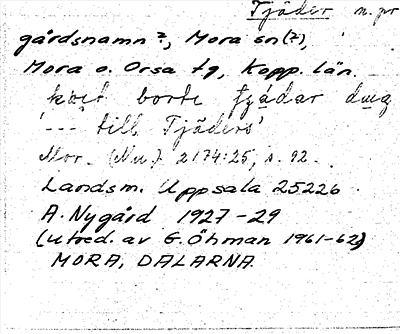 Tjäder n. pr
gårdsnamn?, Mora sn(?),
Mora o. Orsa tg, Kopp. län.
borte
'--- till Tjäders'
Mor. (Nu.) 2174:25, s. 92.
Landsm. Uppsala 25226
A. Nygård 1927-29
(utred. av G. Öhman 1961-62)
MORA, DALARNA.